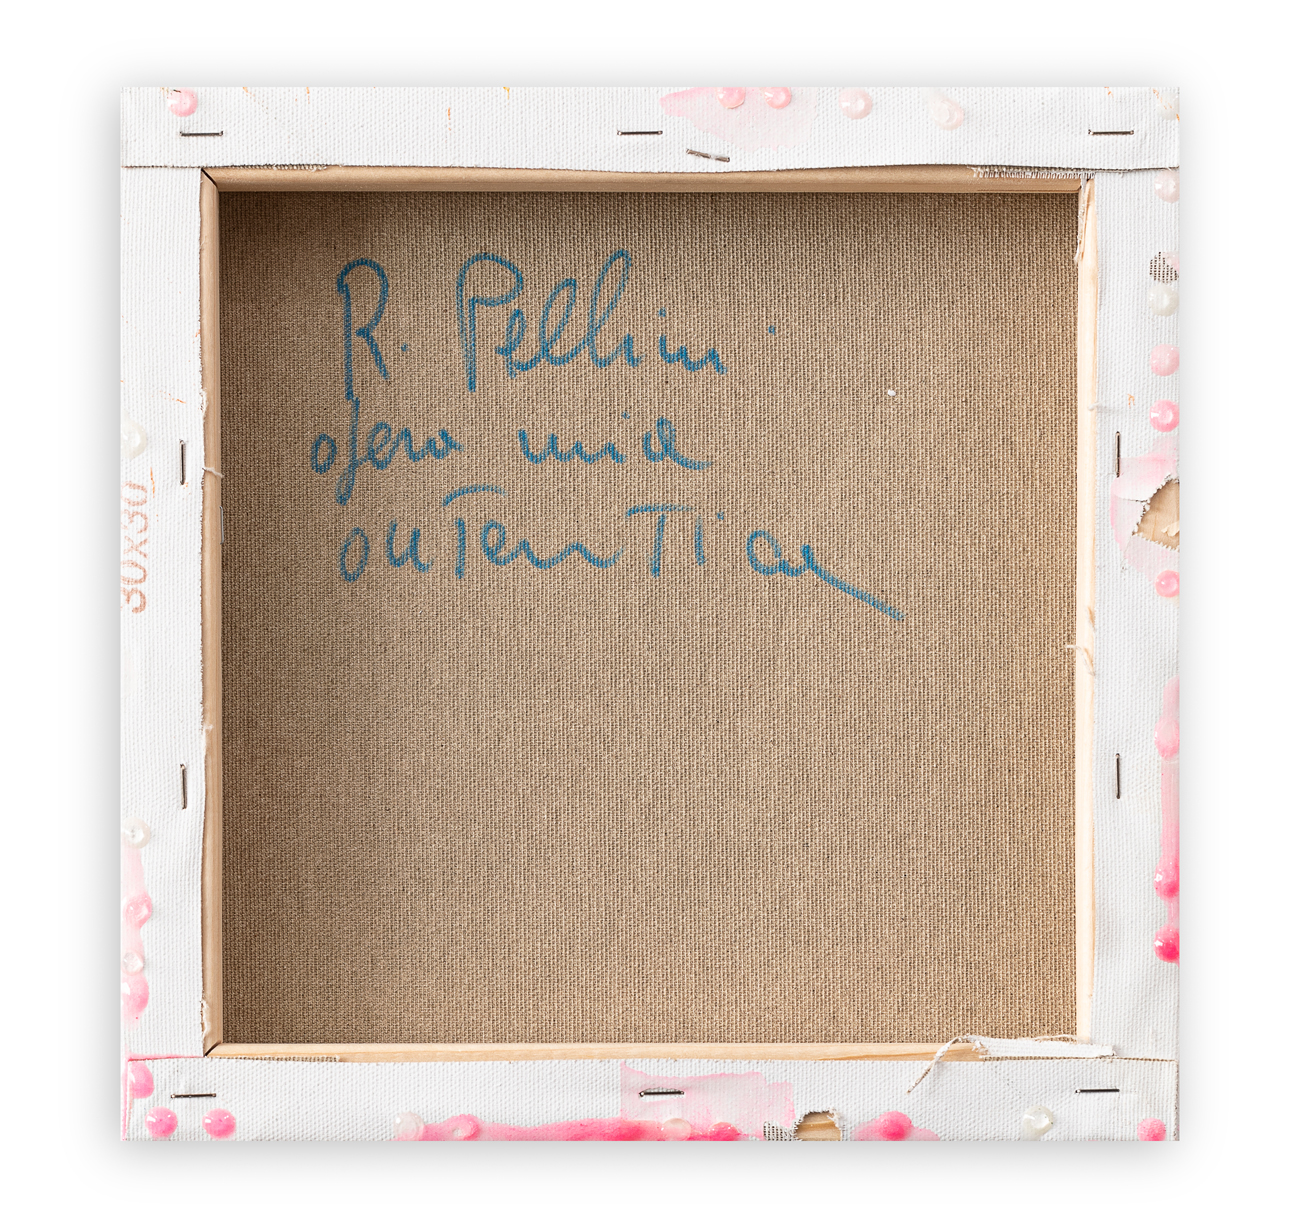 R. Pellini
opera mia
autentica
30x30